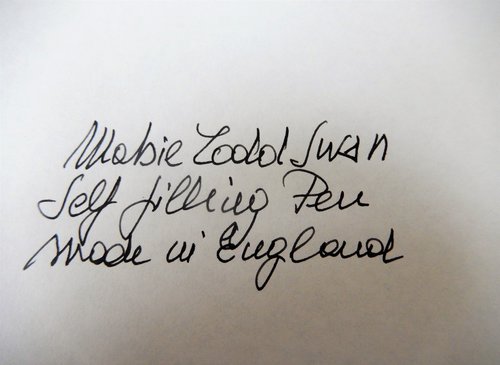 Mabie Todd Swan
Self filling Pen
made in England